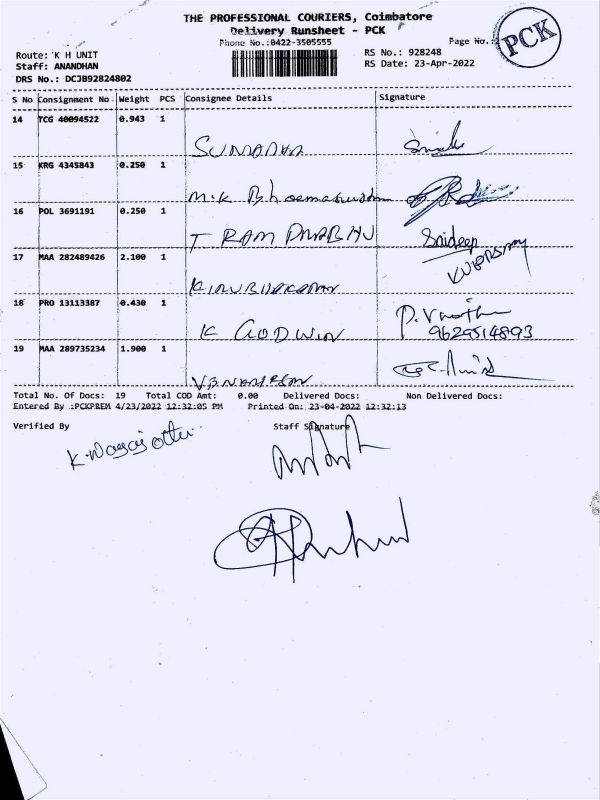 THE PROFESSIONAL COURIERS, Coimbatore
Delivery Runsheet - PCK
Phone No.:0422-3505555
Page No.:2
PCK
Route: K H UNIT
RS No.: 928248
Staff: ANANDHAN
RS Date: 23-Apr-2022
DRS No.: DCJB92824802
S No Consignment No Weight PCS Consignee Details Signature
14 TCG 40094522 0.943 1
15 KRG 4345843 0.250 1
M.K
16 POL 3691191 0.250 1
T RAM PRABHU
Srideep
17 MAA 282489426 2.100 1
18 PRO 13113387 0.430 1
K GODWIN
9629514893
19 MAA 289735234 1.900 1
Total No. Of Docs: 19 Total COD Amt: 0.00 Delivered Docs: Non Delivered Docs:
Entered By :PCKPREM 4/23/2022 12:32:05 PM Printed On: 23-04-2022 12:32:13
Verified By Staff Signature